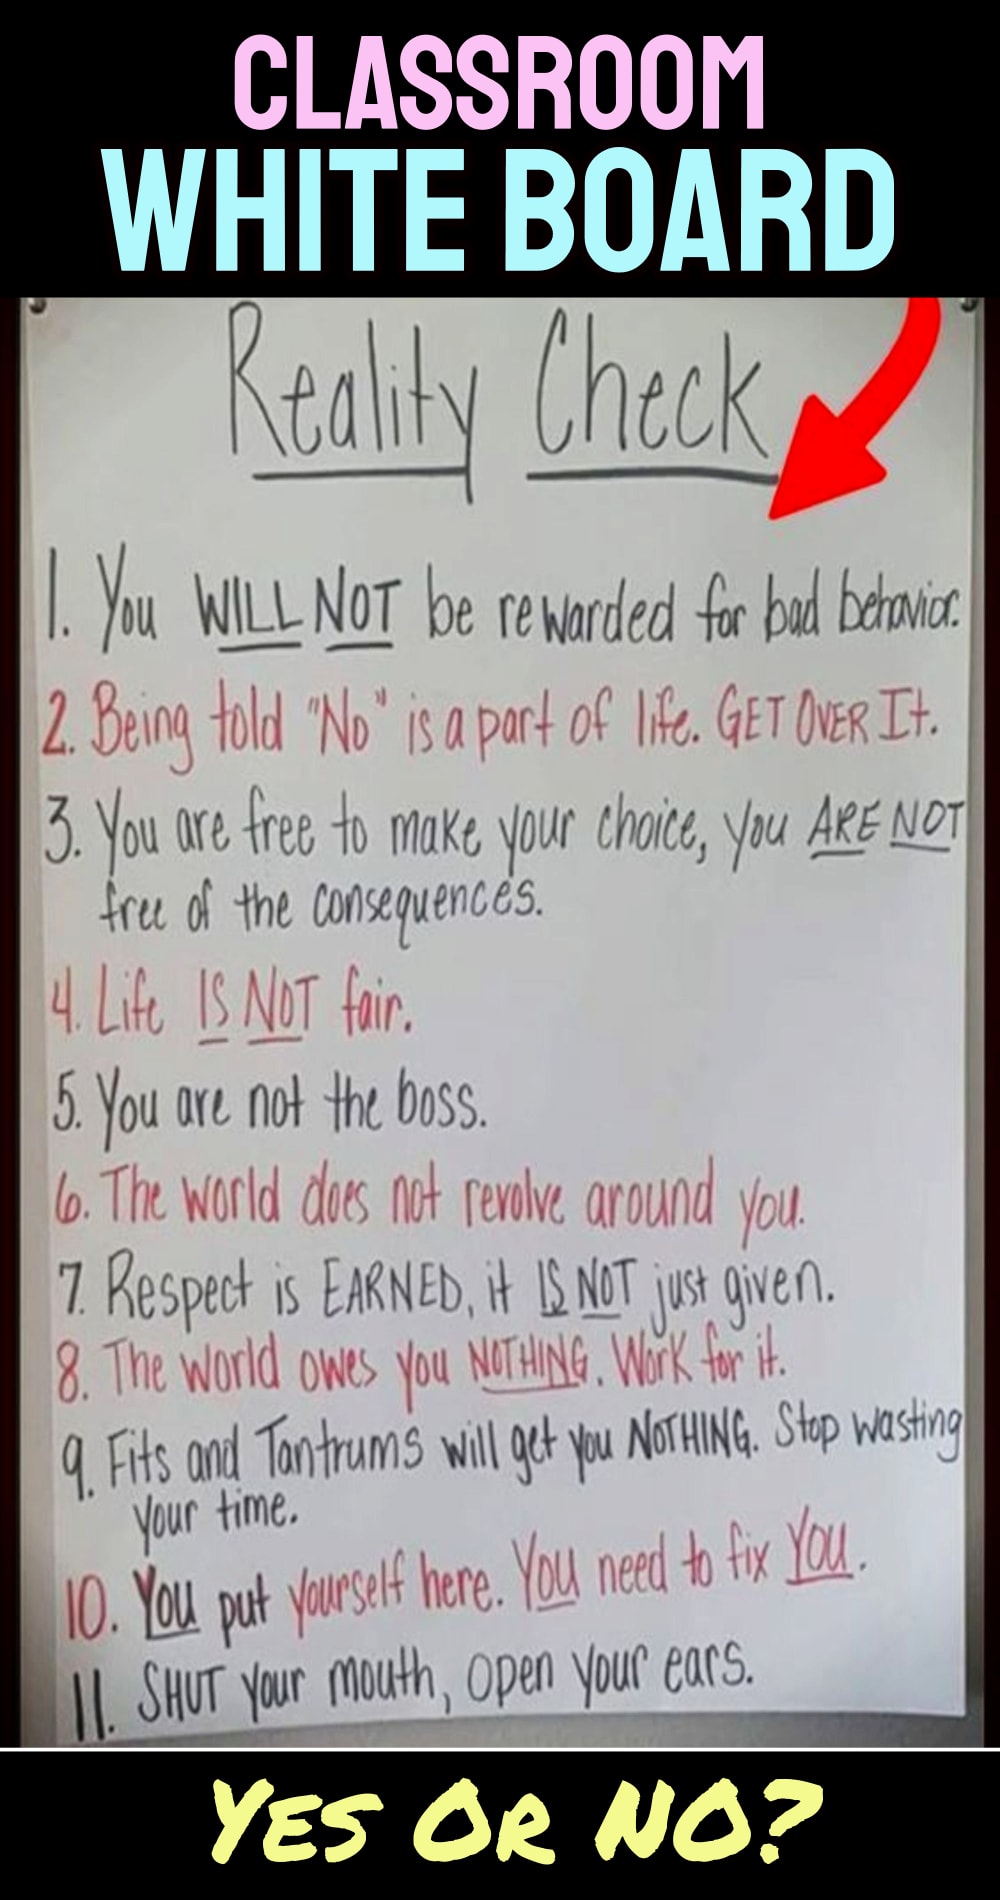 CLASSROOM
WHITE BOARD
Reality Check
1. You WILL NOT be rewarded for bad behavior.
2. Being told "No" is a part of life. GET OVER It.
3. You are free to make your choice, you ARE NOT
free of the consequences.
4. Life IS NOT fair.
5. You are not the boss.
6. The world does not revolve around you.
7. Respect is EARNED, it IS NOT just given.
8. The world owes you NOTHING. Work for it.
9. Fits and Tantrums will get you NOTHING. Stop wasting
your time.
10. You put yourself here. YOU need to fix YOU.
11. SHUT your mouth, open your ears.
YES OR NO?